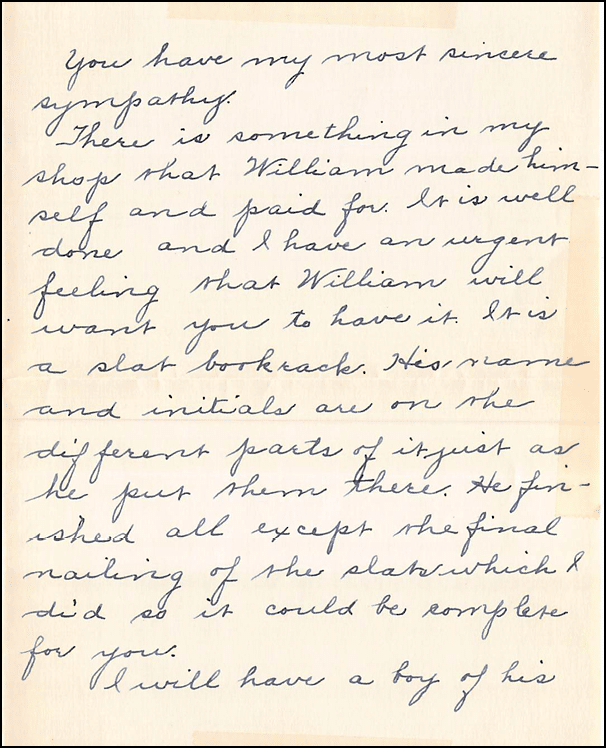 You have my most sincere
sympathy.
There is something in my
shop that William made him-
self and paid for. It is well
done and I have an urgent
feeling that William will
want you to have it. It is
a slat bookrack. His name
and initials are on the
different parts of it just as
he put them there. He fin-
ished all except the final
nailing of the slats which I
did so it could be complete
for you.
I will have a boy of his